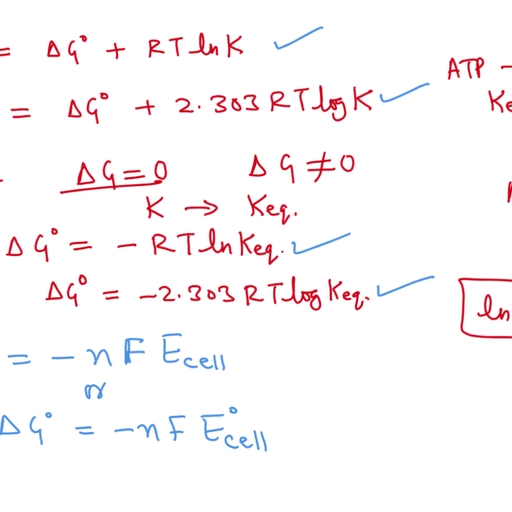 = ΔG° + RT ln K
= ΔG° + 2.303 RT log K
ΔG = 0   ΔG ≠ 0
K → Keq.
ΔG° = - RT ln Keq.
ΔG° = -2.303 RT log Keq.
= - n F Ecell
or
ΔG° = -n F E°cell
ATP -
ln